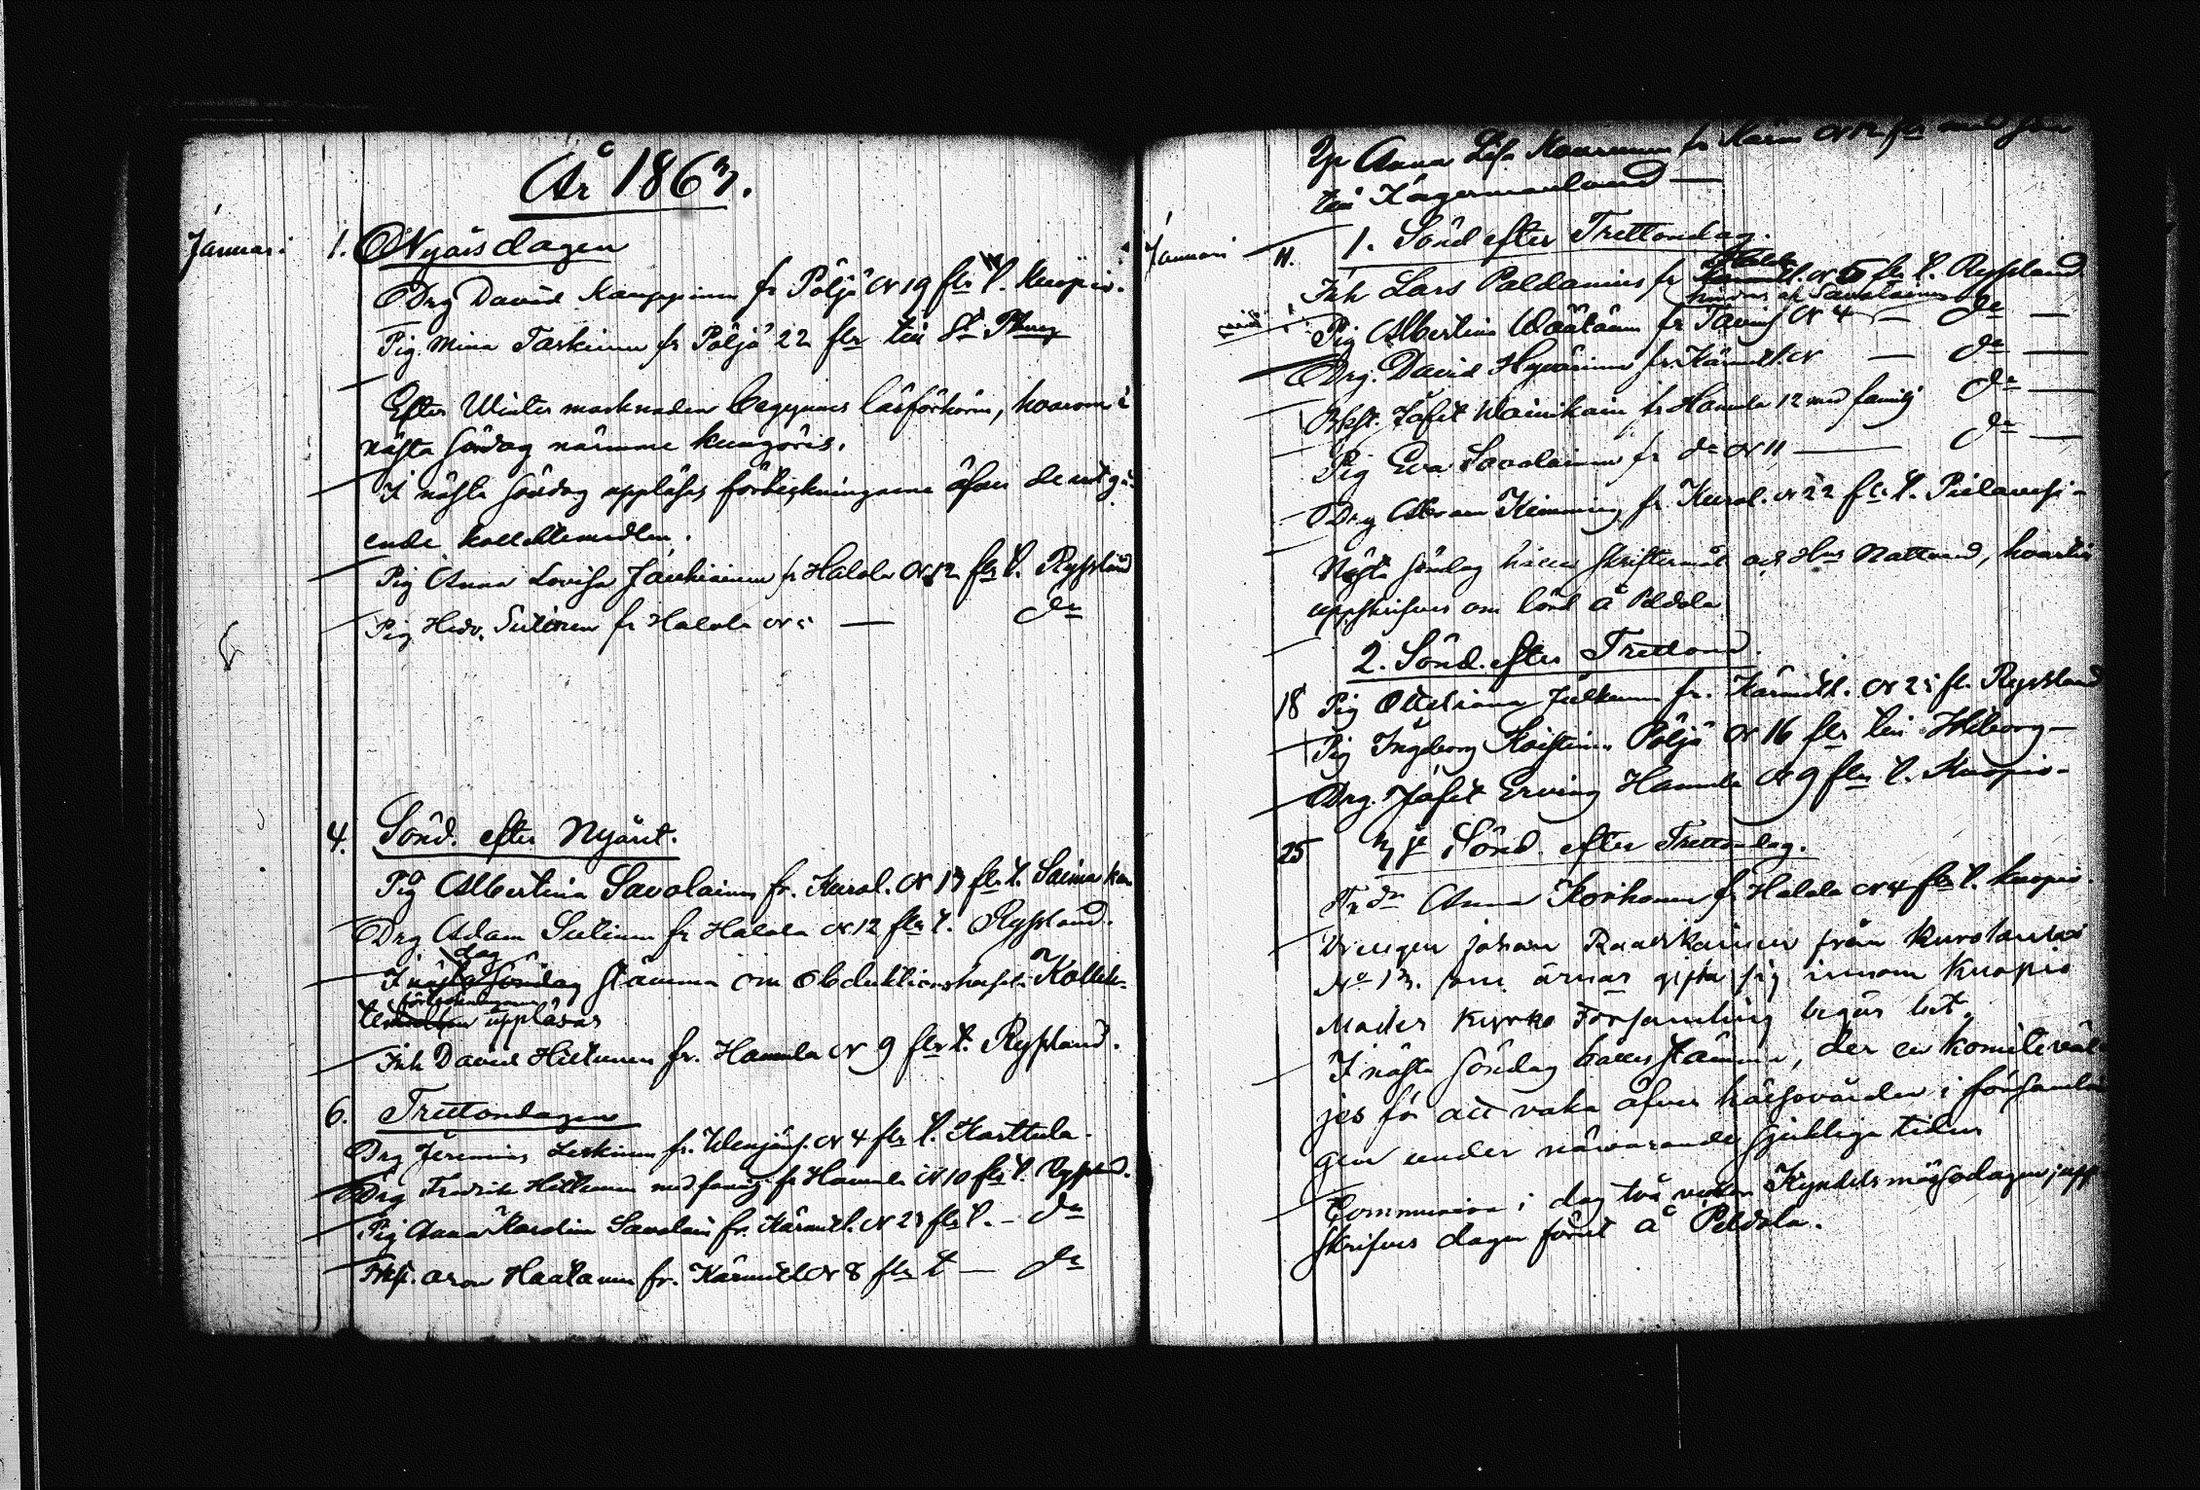 År 1863.
Januari 1. Nyårsdagen
Drg David Kauppinen fr Pöljä N 19 fltr t. Kuopio.
Pig. Mina Taskinen fr Pöljä 22 fltr till St Pburg
Efter Winter marknaden begynnes läsförhören, hvarom i
nästa söndag närmare kungöres.
I nästa söndag uppläses förteckningarne öfver de utgå-
ende kollektmedlen.
Pig Anna Lovisa Jauhiainen fr Halola N 12 fltr t. Ryssland
Pig Hedv. Sutinen fr Halola N 5 — do
4. Sönd. efter Nyåret.
Pig Albertina Savolainen fr. Kurol. N 13 fltr t. Saima kan
Drg Adam Sutinen fr Halola N 12 fltr t. Ryssland.
dag
I nästa Söndag stämma om obduktionshuset. Kollek-
förteckningarne
temedlen uppläses
Inh David Hiltunen fr. Hamula N 9 fltr t. Ryssland.
6. Trettondagen
Drg Jeremias Leskinen fr. Wenäjäs. N 4 fltr t. Karttula.
Drg Fredrik Hiltunen med familj fr Hamula N 10 fltr t. Ryssland.
Pig Anna Karolina Savolain fr. Kärmel. N 23 fltr t. - do
Aron Haatanen fr. Kärmel N 8 fltr t — do
Anna Lisa fr N 12 fltr med
till Ingermanland —
Januari 11. 1. Sönd efter Trettondag.
Inh Lars Paldanius fr N 5 fltr t. Ryssland
Savolainen
Pig Albertina Väätäin fr N 4 — do —
Drg. David Hyvärinen fr. Kärmel. N — do —
Jafet Wainikain fr Hamula 12 med familj do —
Pig Eva Savolainen fr do N 11 — do —
Drg Abram Kimming fr. Kurol. N 22 fltr t. Pielavesi -
Nästa söndag hålles skriftermål och Hrs Nattvard, hvartill
uppskrifves om lörd å Peldola
2. Sönd. efter Trettond.
18 Pig Ottiliana Julkunen fr. Kärmel. N 25 fl. Ryssland
Pig Ingeborg Koistinen Pöljä N 16 fltr till Wiborg —
Drg. Jafet Erving Hamula N 9 fltr t. Kuopio -
25 3je Sönd. efter Trettondag.
Anna Korhonen fr Halola N 4 fltr t. Kuopio.
Drengen Johan Raatikainen från Kurolanlax
No 13. som ärnar gifta sig innom Kuopio
Moder Kyrko Församling begär bet.
I nästa söndag hålles stämma, der en komité väl-
jes för att vaka öfver helsovården i församlin
gen under närvarande sjukliga tider
Communion i dag två veckor Kyndelsmässodagen, upp
skrifves dagen förut å Peldola.